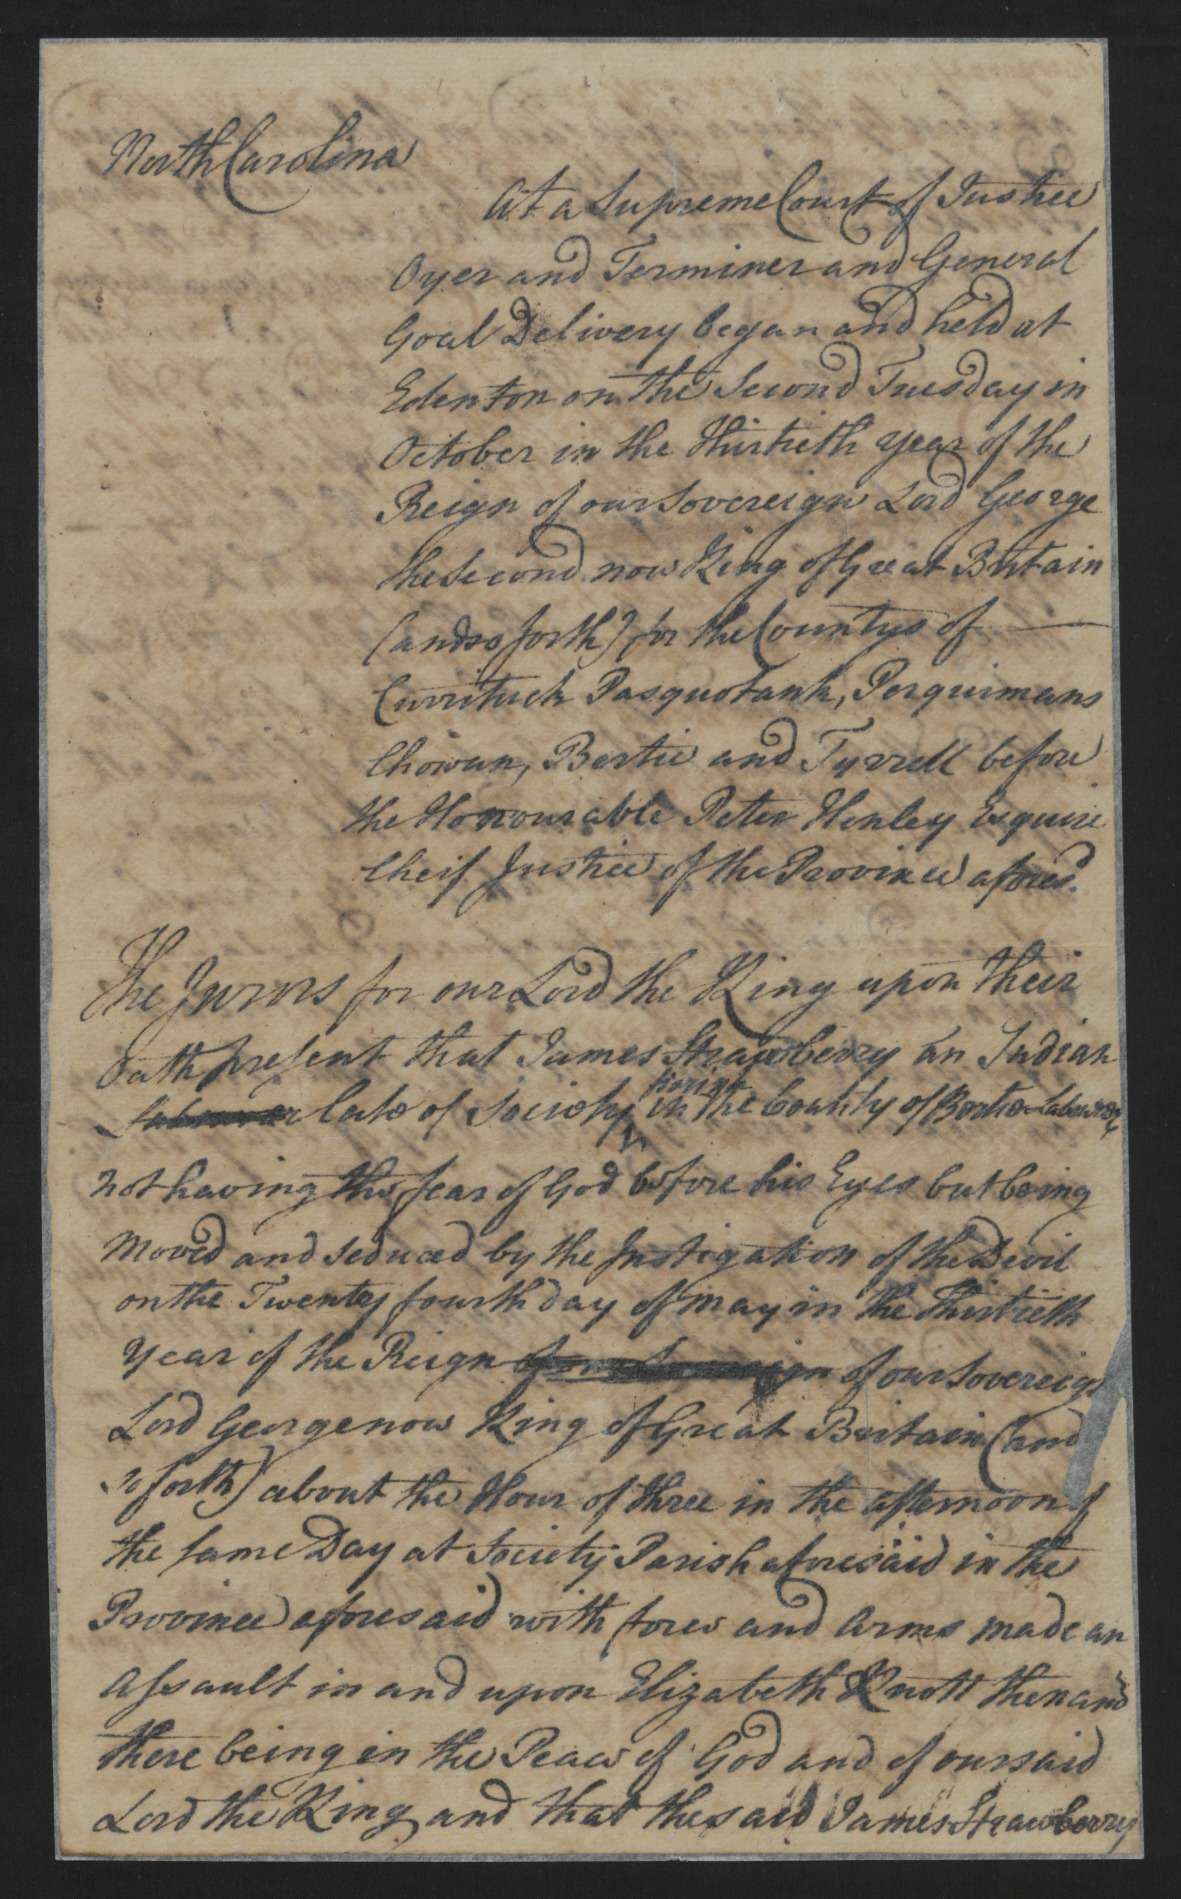 North Carolina
At a Supreme Court of Justice
Oyer and Terminer and General
Goal Delivery began and held at
Edenton on the Second Tuesday in
October in the thirtieth year of the
Reign of our Sovereign Lord George
the Second now King of Great Britain
(and so forth) for the Countys of
Currituck Pasquotank, Perquimans
Chowan, Bertie and Tyrrell before
the Honourable Peter Henley Esquire
Cheif Justice of the Province afores.d
The Jurors for our Lord the King upon their
Oath present that James Strawberry an Indian
Parish
Labourer late of Society in the County of Bertie Labourer
not having the fear of God before his Eyes but being
moved and seduced by the Instigation of the Devil
on the Twenty fourth day of may in the Thirtieth
Year of the Reign of our Sovereign of our Sovereign
Lord George now King of Great Britain (and
so forth) about the Hour of three in the afternoon of
the same Day at Society Parish aforesaid in the
Province aforesaid with force and Arms made an
Assault in and upon Elizabeth Knott then and
there being in the Peace of God and of our said
Lord the King and that the said James Strawberry